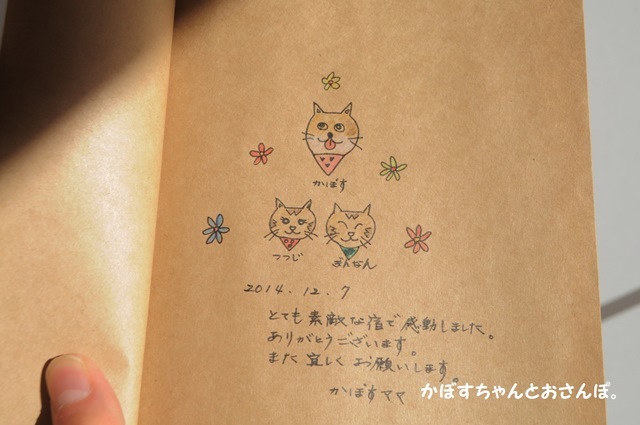 かぼす
つつじ
おんなん
2014.12.7
とても素敵な宿で感動しました。
ありがとうございます。
また宜しくお願いします。
かぼすママ
かぼすちゃんとおさんぽ。